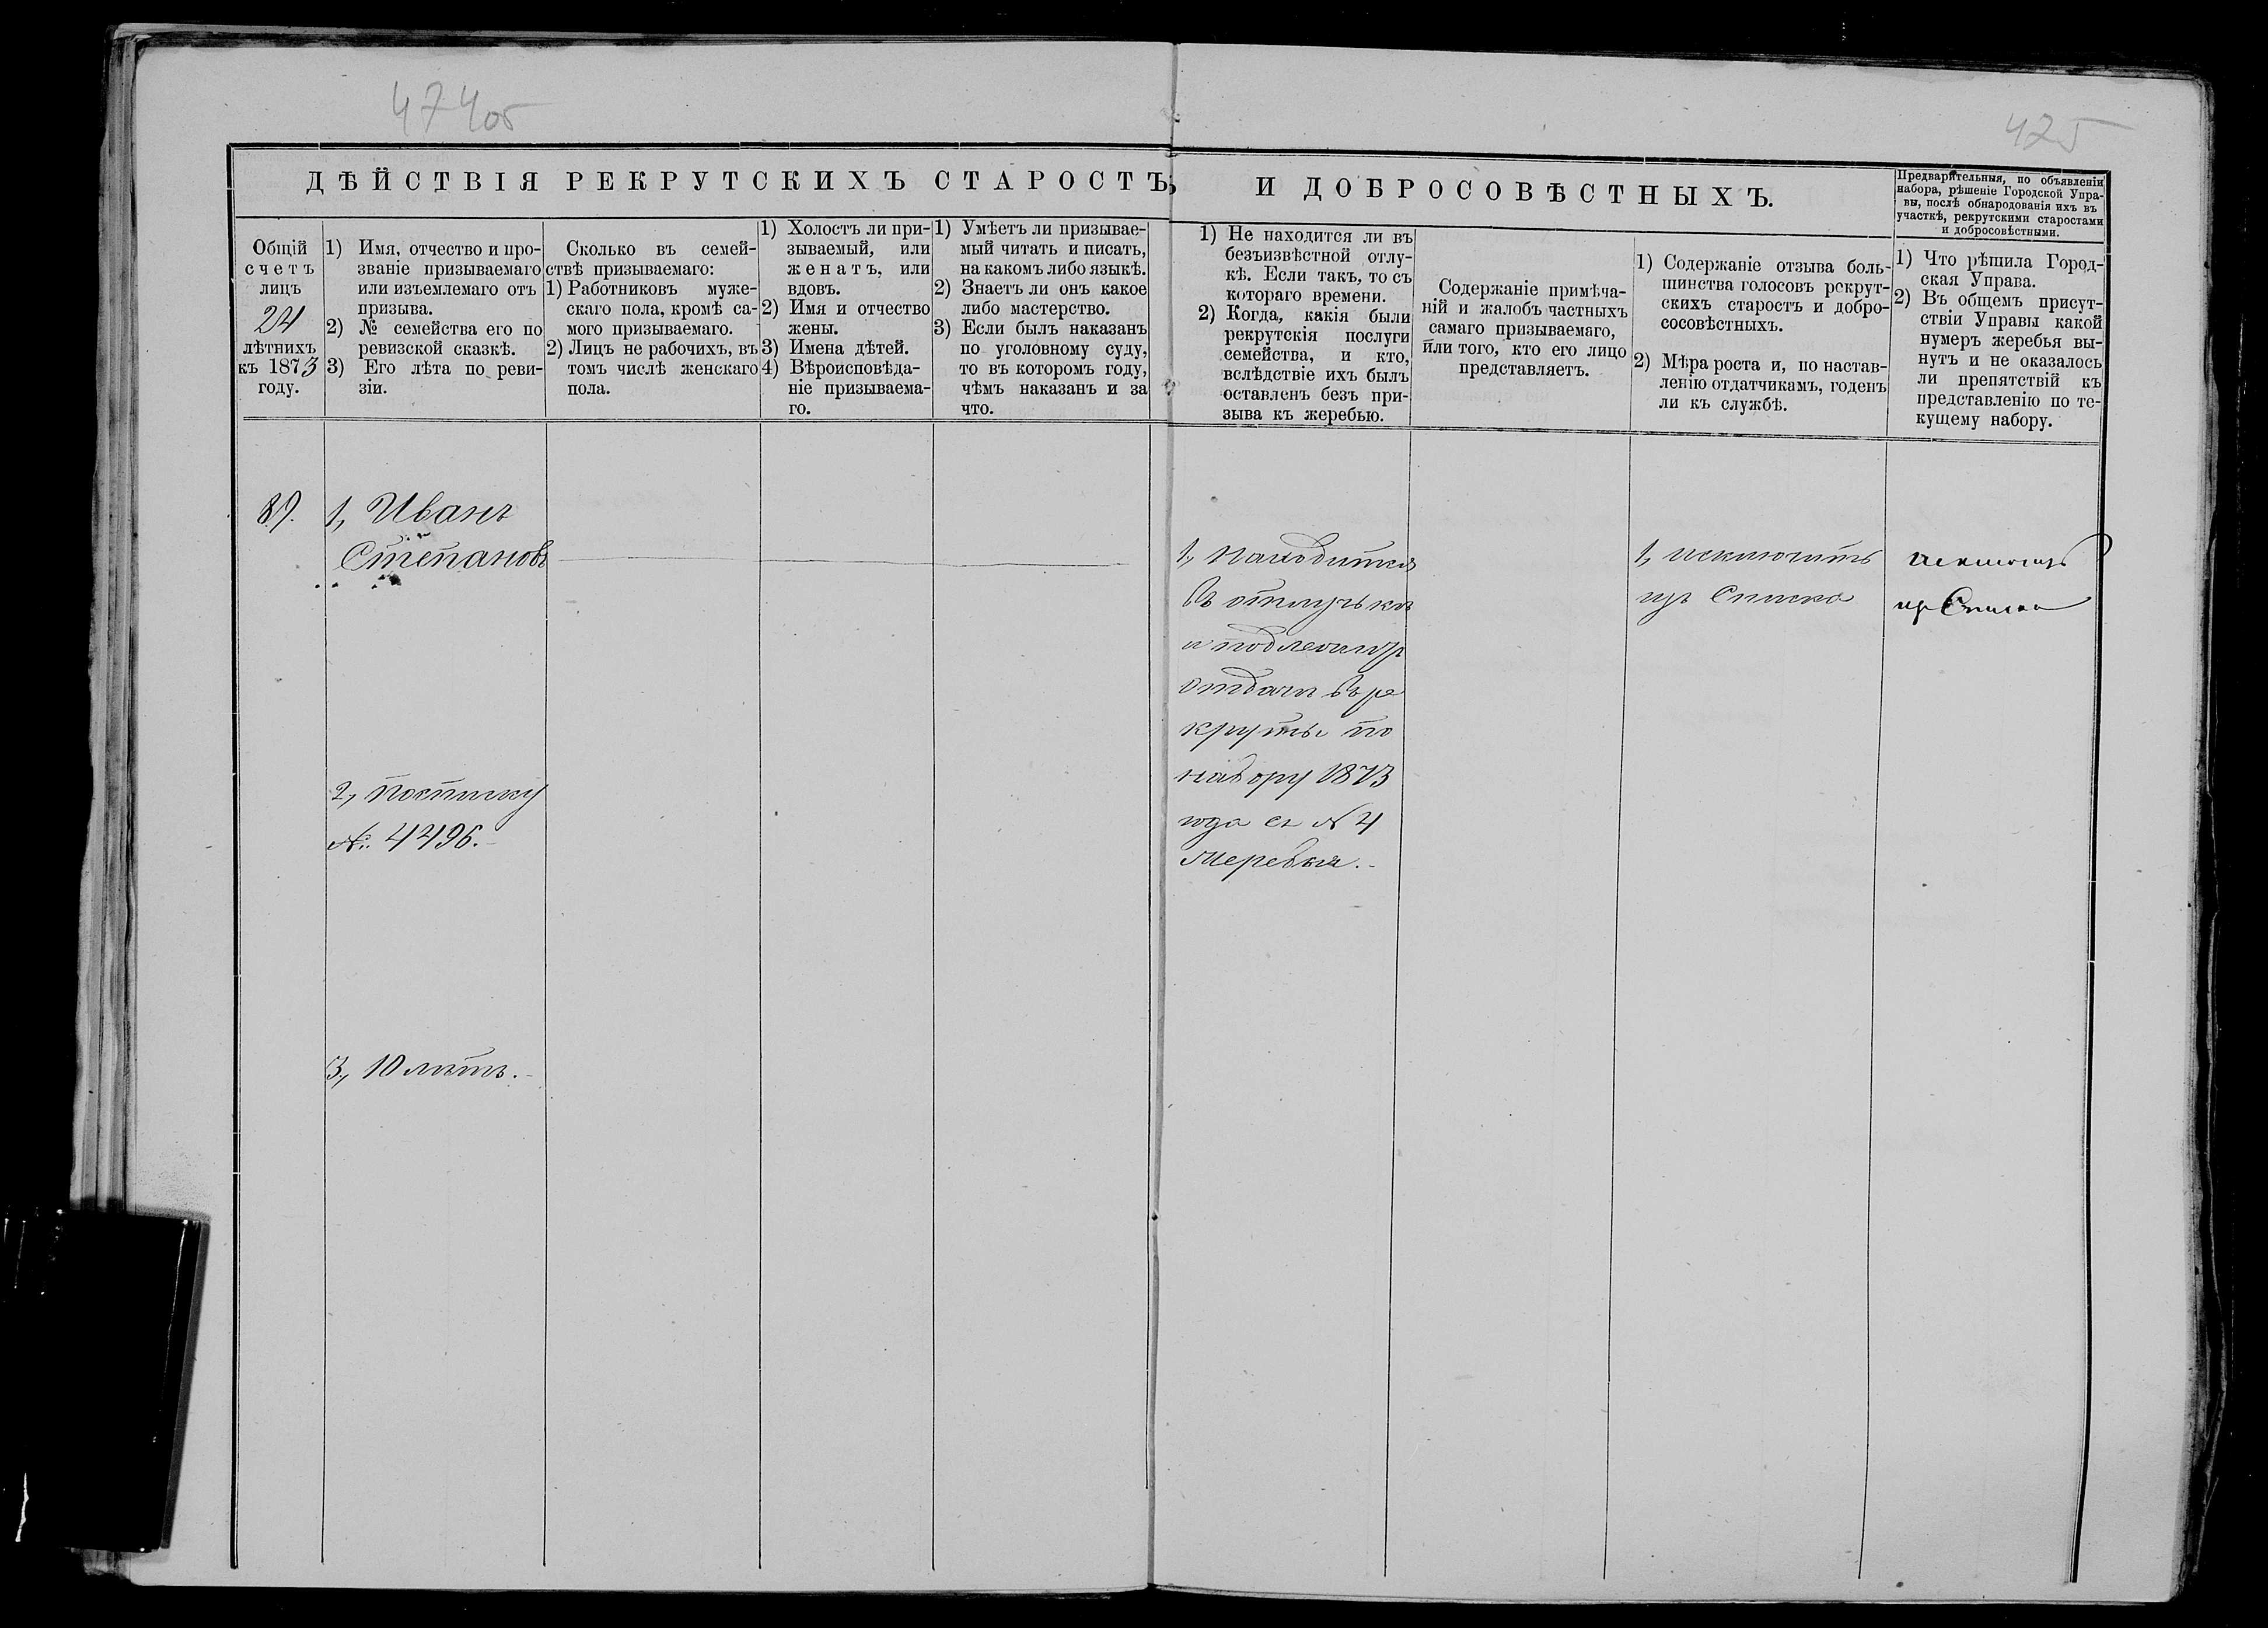 474об
425
ДѢЙСТВІЯ РЕКРУТСКИХЪ СТАРОСТЪ
И ДОБРОСОВѢСТНЫХЪ.
Предварительныя, по объявленіи
набора, рѣшеніе Городской Упра-
вы, послѣ обнародованія ихъ въ
участкѣ, рекрутскими старостами
и добросовѣстными.
Общій
счетъ
лицъ
24
лѣтнихъ
къ 1873
году.
1) Имя, отчество и про-
званіе призываемаго
или изъемлемаго отъ
призыва.
2) № семейства его по
ревизской сказкѣ.
3) Его лѣта по реви-
зіи.
Сколько въ семей-
ствѣ призываемаго:
1) Работниковъ муже-
скаго пола, кромѣ са-
мого призываемаго.
2) Лицъ не рабочихъ, въ
томъ числѣ женскаго
пола.
1) Холостъ ли при-
зываемый, или
женатъ, или
вдовъ.
2) Имя и отчество
жены.
3) Имена дѣтей.
4) Вѣроисповѣда-
ніе призываема-
го.
1) Умѣетъ ли призывае-
мый читать и писать,
на какомъ либо языкѣ.
2) Знаетъ ли онъ какое
либо мастерство.
3) Если былъ наказанъ
по уголовному суду,
то въ которомъ году,
чѣмъ наказанъ и за
что.
1) Не находится ли въ
безъизвѣстной отлу-
кѣ. Если такъ, то съ
котораго времени.
2) Когда, какія были
рекрутскія послуги
семейства, и кто,
вслѣдствіе ихъ былъ
оставленъ безъ при-
зыва къ жеребью.
Содержаніе примѣча-
ній и жалобъ частныхъ
самаго призываемаго,
или того, кто его лицо
представляетъ.
1) Содержаніе отзыва боль-
шинства голосовъ рекрут-
скихъ старостъ и добро-
сосовѣстныхъ.
2) Мѣра роста и, по настав-
ленію отдатчикамъ, годенъ
ли къ службѣ.
1) Что рѣшила Город-
ская Управа.
2) Въ общемъ присут-
ствіи Управы какой
нумеръ жеребья вы-
нутъ и не оказалось
ли препятствій къ
представленію по те-
кущему набору.
89.
1, Иванъ
Степановъ
2,
№ 4496.
3, 10 лѣтъ.
1, находится
въ
и подлежитъ
отдачи въ ре
круты по
набору 1873
года съ № 4
жеребья.
1, исключить
изъ Списка
исключить
изъ Списка